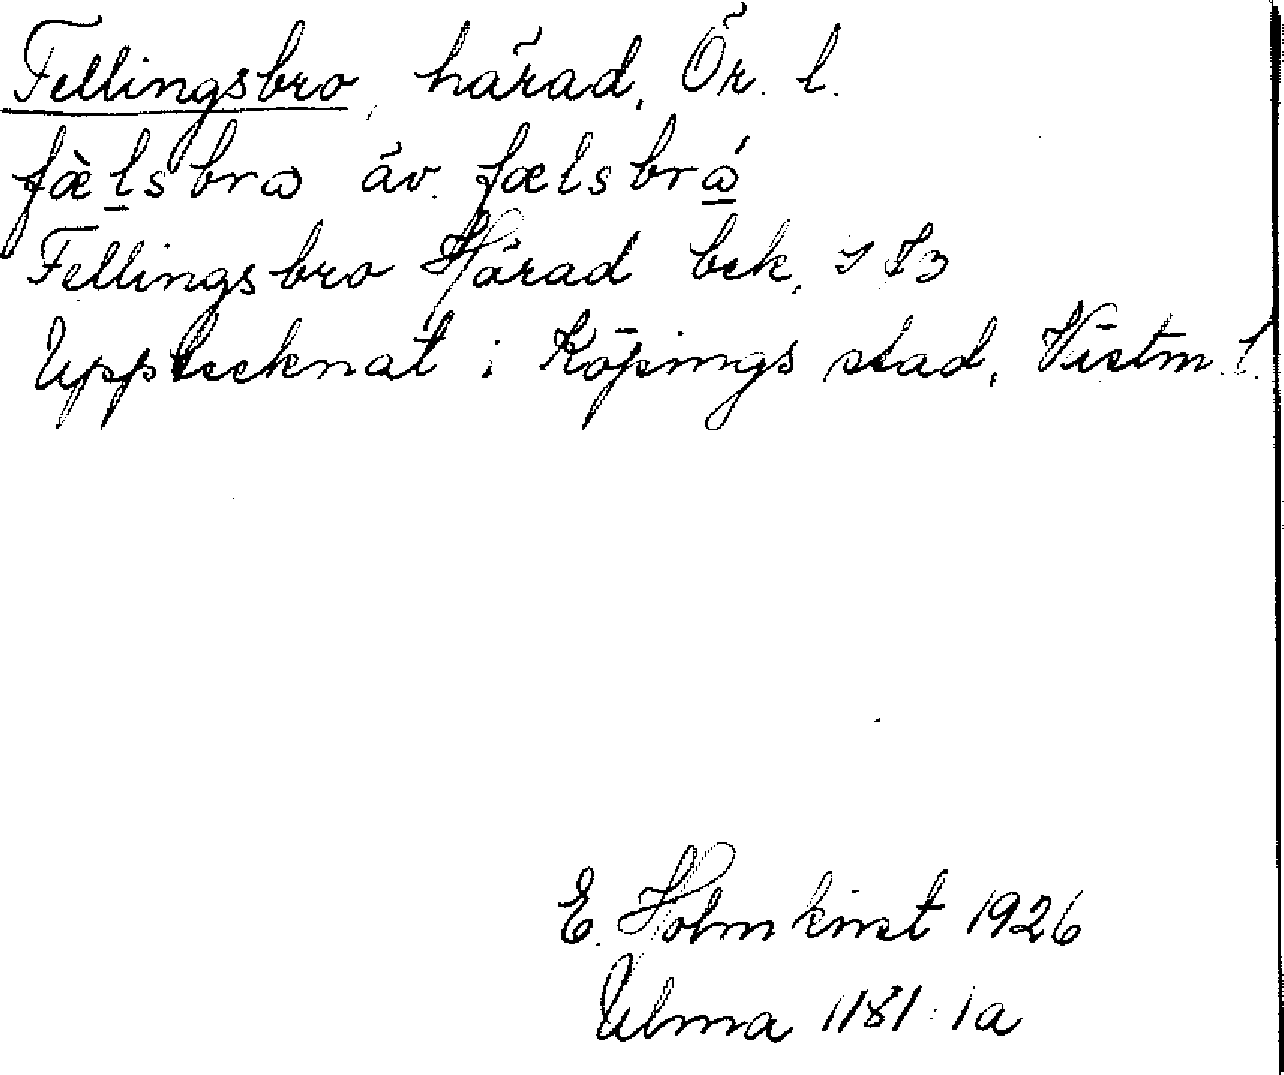 Fellingsbro, härad, Ör. l.
fæ̀l̲sbrω äv. fælsbrώ̲
Fellingsbro Härad bek.
Upptecknat i Köpings stad, Västm. l.
E. Holmkvist 1926
Ulma 1181:1a